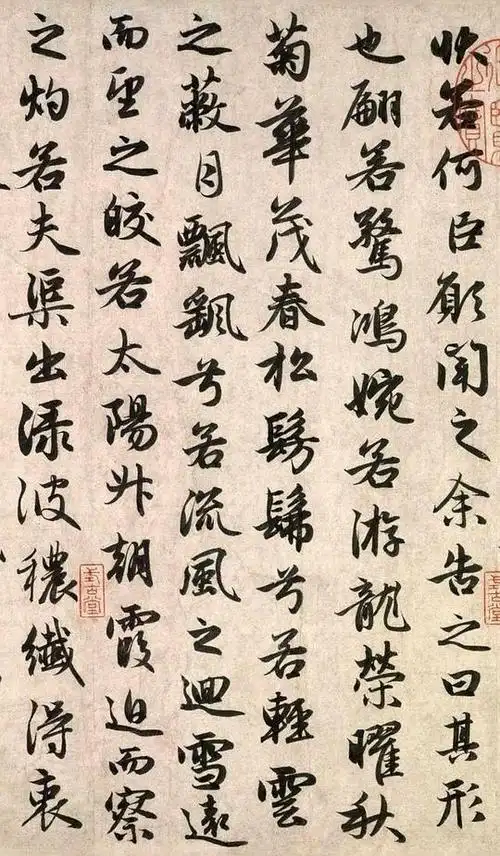 狀若何臣願聞之余告之曰其形
也翩若驚鴻婉若游龍榮曜秋
菊華茂春松髣髴兮若輕雲
之蔽月飄飖兮若流風之迴雪遠
而望之皎若太陽升朝霞迫而察
之灼若夫渠出淥波穠纖得衷